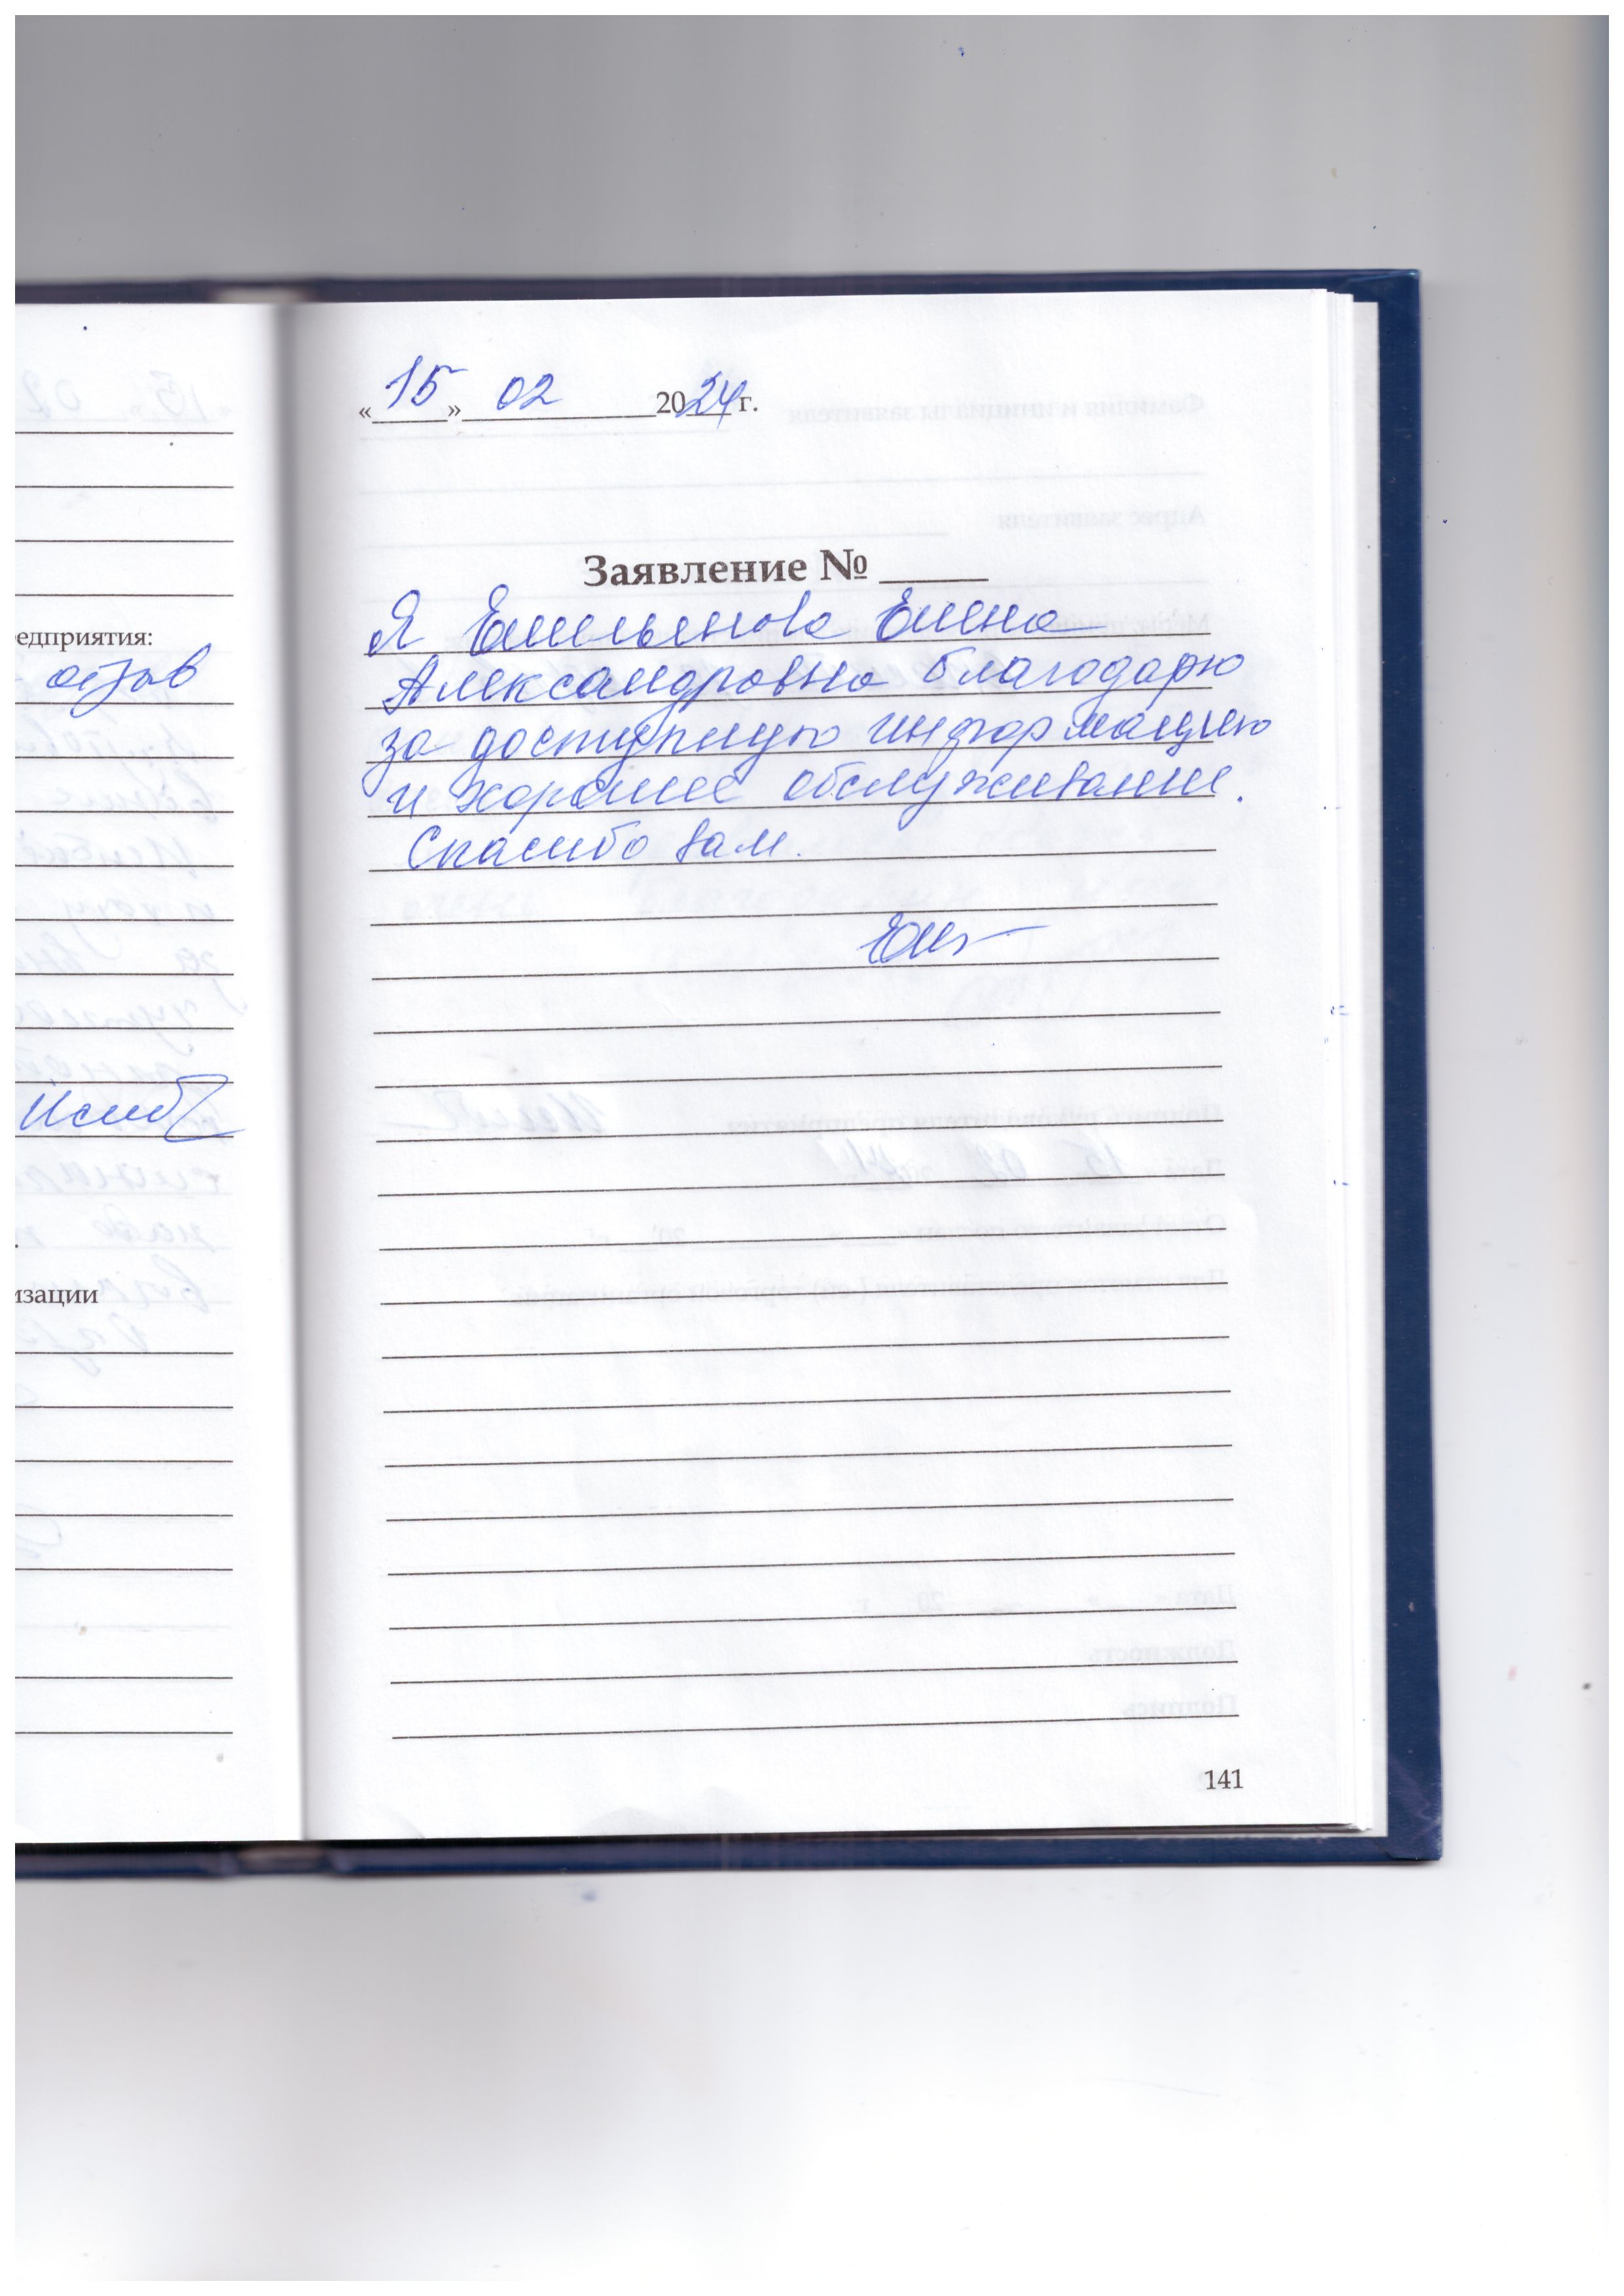 едприятия:
отзыв
изации
«15» 02 2024 г.
Заявление №
Я Емельянова Елена
Александровна благодарю
за доступную информацию
и хорошее обслуживание.
Спасибо вам.
141